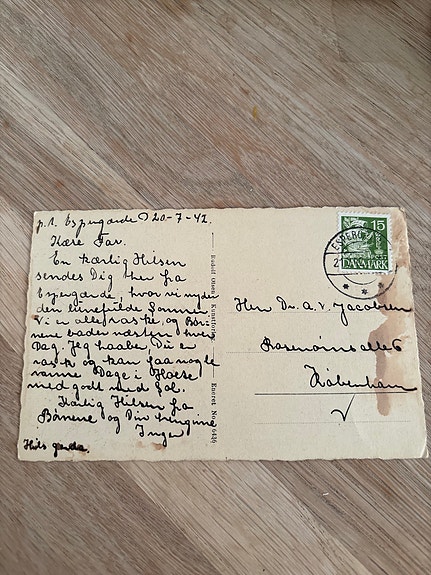 p.t. Espergærde d 20-7-42.
Kære Far.
En kærlig Hilsen
sendes Dig her fra
Espergærde, hvor vi nyder
den Sommer.
Vi er alle raske, og Bør-
nene bader næsten hver
Dag. Jeg haaber Du er
rask og kan faa nogle
Dage i
med godt med Sol.
Kærlig Hilsen fra
Børnene og Din hengivne
Inger
Hils
Rudolf Olsens Kunstforlag Eneret No. 6436
ESPERGÆ
15
DANMARK
Hr. Dr. A. V. Jacobsen
Rosenørns alle 6
København
V